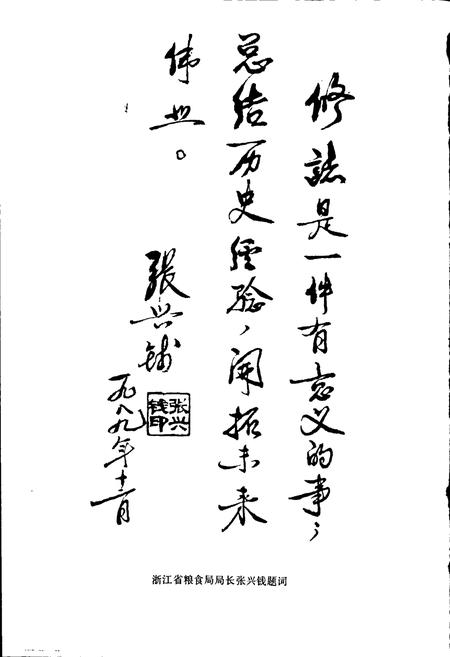 修誌是一件有意义的事，
总结历史经验，开拓未来
伟业。
张兴钱
一九八九年十二月
张兴
钱印
浙江省粮食局局长张兴钱题词